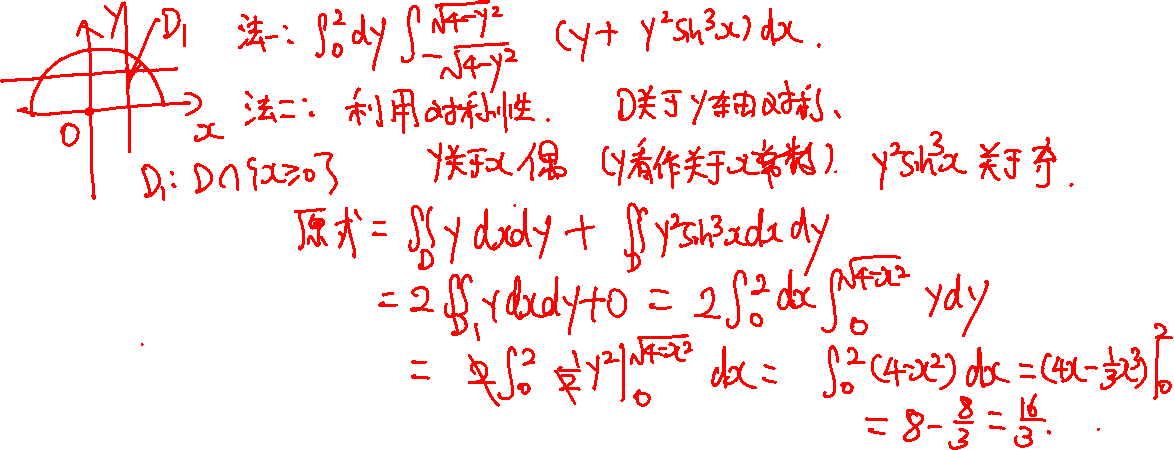 y D₁
法一: ∫₀² dy ∫_{-√(4-y²)}^{√(4-y²)} (y + y² sin³x) dx.
O x
法二: 利用对称性. D关于y轴对称、
D₁: D∩{x≥0}
y关于x偶 (y看作关于x常数). y² sin³x 关于奇.
原式 = ∬_D y dxdy + ∬_D y² sin³x dx dy
= 2∬_{D₁} y dxdy + 0 = 2∫₀² dx ∫₀^{√(4-x²)} y dy
= 2∫₀² ½ y² |₀^{√(4-x²)} dx = ∫₀² (4-x²) dx = (4x - ⅓x³)|₀²
= 8 - 8/3 = 16/3.